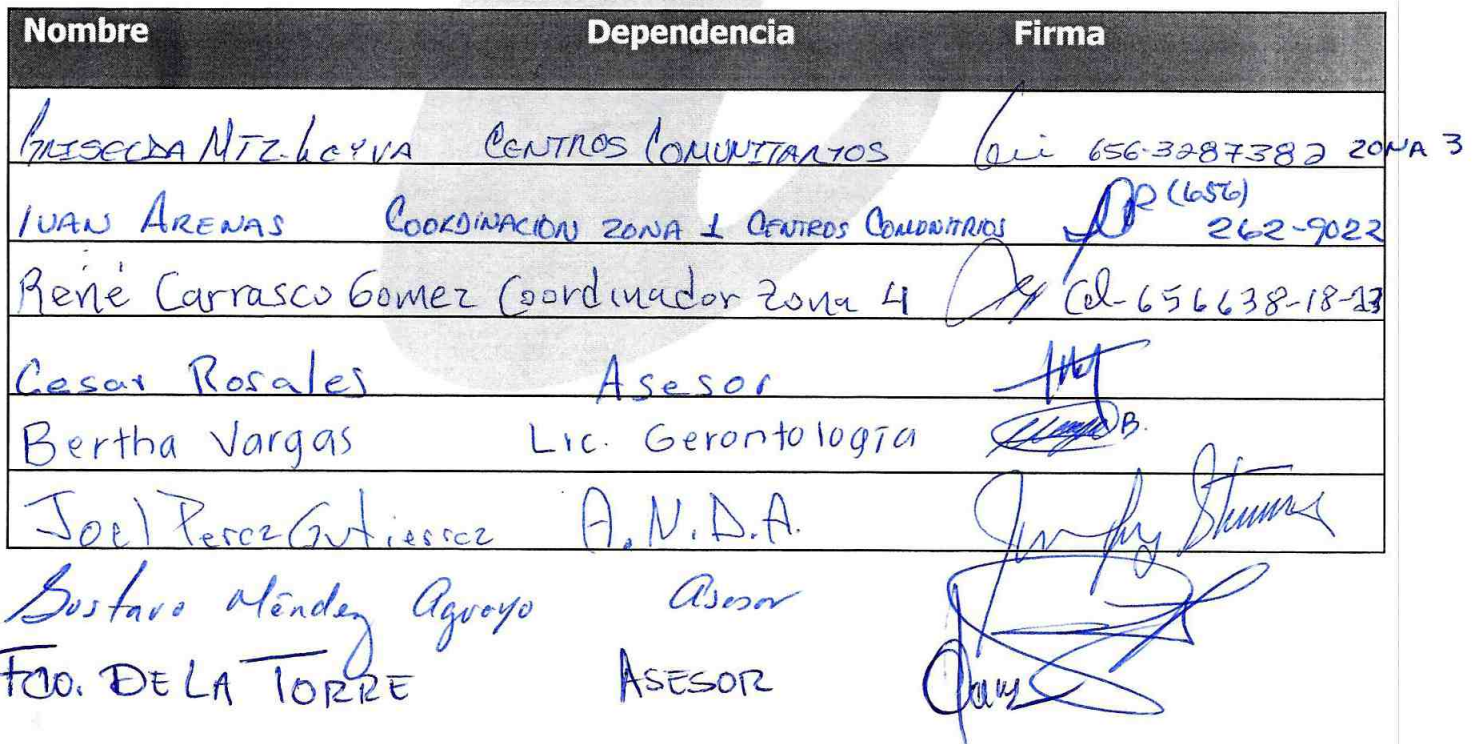 Nombre Dependencia Firma
GRISELDA MTZ. LEYVA CENTROS COMUNITARIOS 656-3287382 ZONA 3
IVAN ARENAS COORDINACION ZONA 1 CENTROS COMUNITRIOS (656)
262-9022
René Carrasco Gomez Coordinador Zona 4 Cel-656638-18-23
Cesar Rosales Asesor
Bertha Vargas Lic. Gerontología B.
Joel Perez Gutierrez A.N.D.A.
Gustavo Méndez Aguayo Asesor
FCO. DE LA TORRE ASESOR